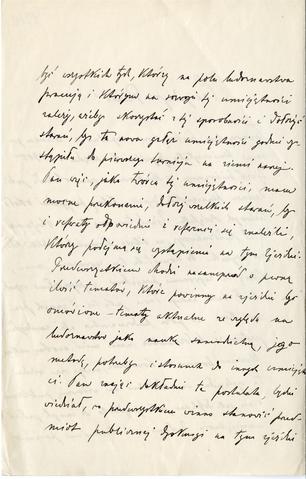 być wszystkich tych, którzy na polu ludoznawstwa
pracują i którym na rozwoju tej umiejętności
zależy, ażeby skorzystać z tej sposobności i dołożyć
starań, by ta nowa gałęź umiejętności godnie wy-
stąpiła do pierwszego turnieju na ziemi naszej.
Pan więc, jako twórca tej umiejętności, mam
mocne przekonanie, dołoży wszelkich starań, by
i referaty odpowiednie i referenci się znaleźli,
którzy podejmą się wystąpienia na tym zjeździe.
Przedewszystkiem chodzi naszemu o pewną
ilość tematów, które powinny na zjeździe być
omówione – tematy aktualne ze względu na
ludoznawstwo jako naukę samodzielną, jego
metodę, potrzeby i stosunek do innych umiejętno-
ści. Pan znając dokładnie te postulata, będzie
wiedział, co przedewszystkiem winno stanowić przed-
miot publicznej dyskusji na tym zjeździe